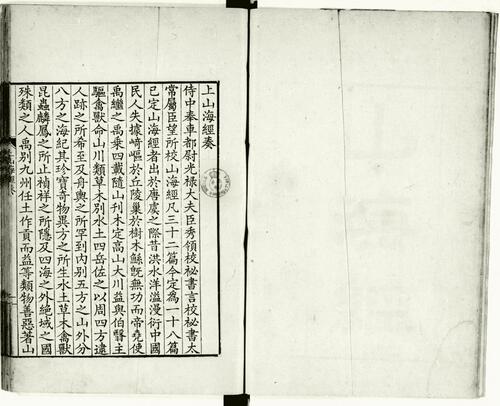 上山海經奏
侍中奉車都尉光祿大夫臣秀領校祕書言校祕書太
常屬臣望所校山海經凡三十二篇今定為一十八篇
已定山海經者出於唐虞之際昔洪水洋溢漫衍中國
民人失據崎嶇於丘陵巢於樹木鯀旣無功而帝堯使
禹繼之禹乘四載隨山刊木定高山大川益與伯翳主
驅禽獸命山川類草木別水土四岳佐之以周四方逮
人跡之所希至及舟輿之所罕到內別五方之山外分
八方之海紀其珍寶奇物異方之所生水土草木禽獸
昆蟲麟鳳之所止禎祥之所隱及四海之外絕域之國
殊類之人禹別九州任土作貢而益等類物善惡著山